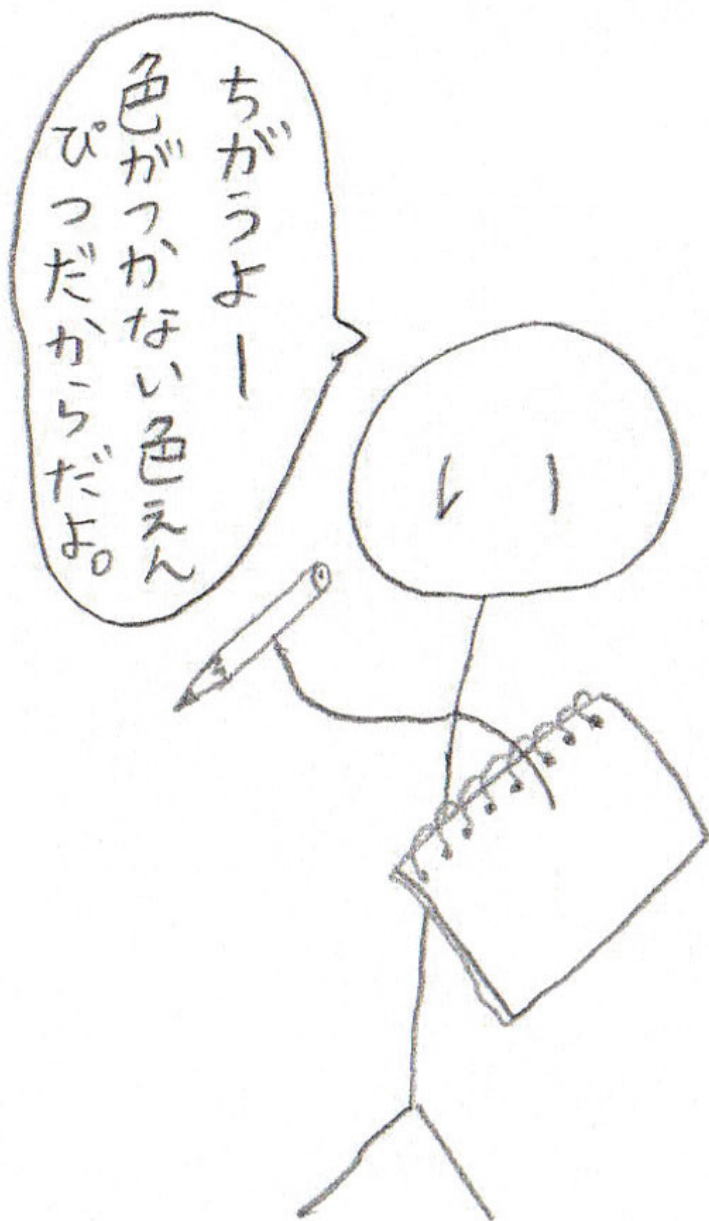 ちがうよー
色がつかない色えん
ぴつだからだよ。